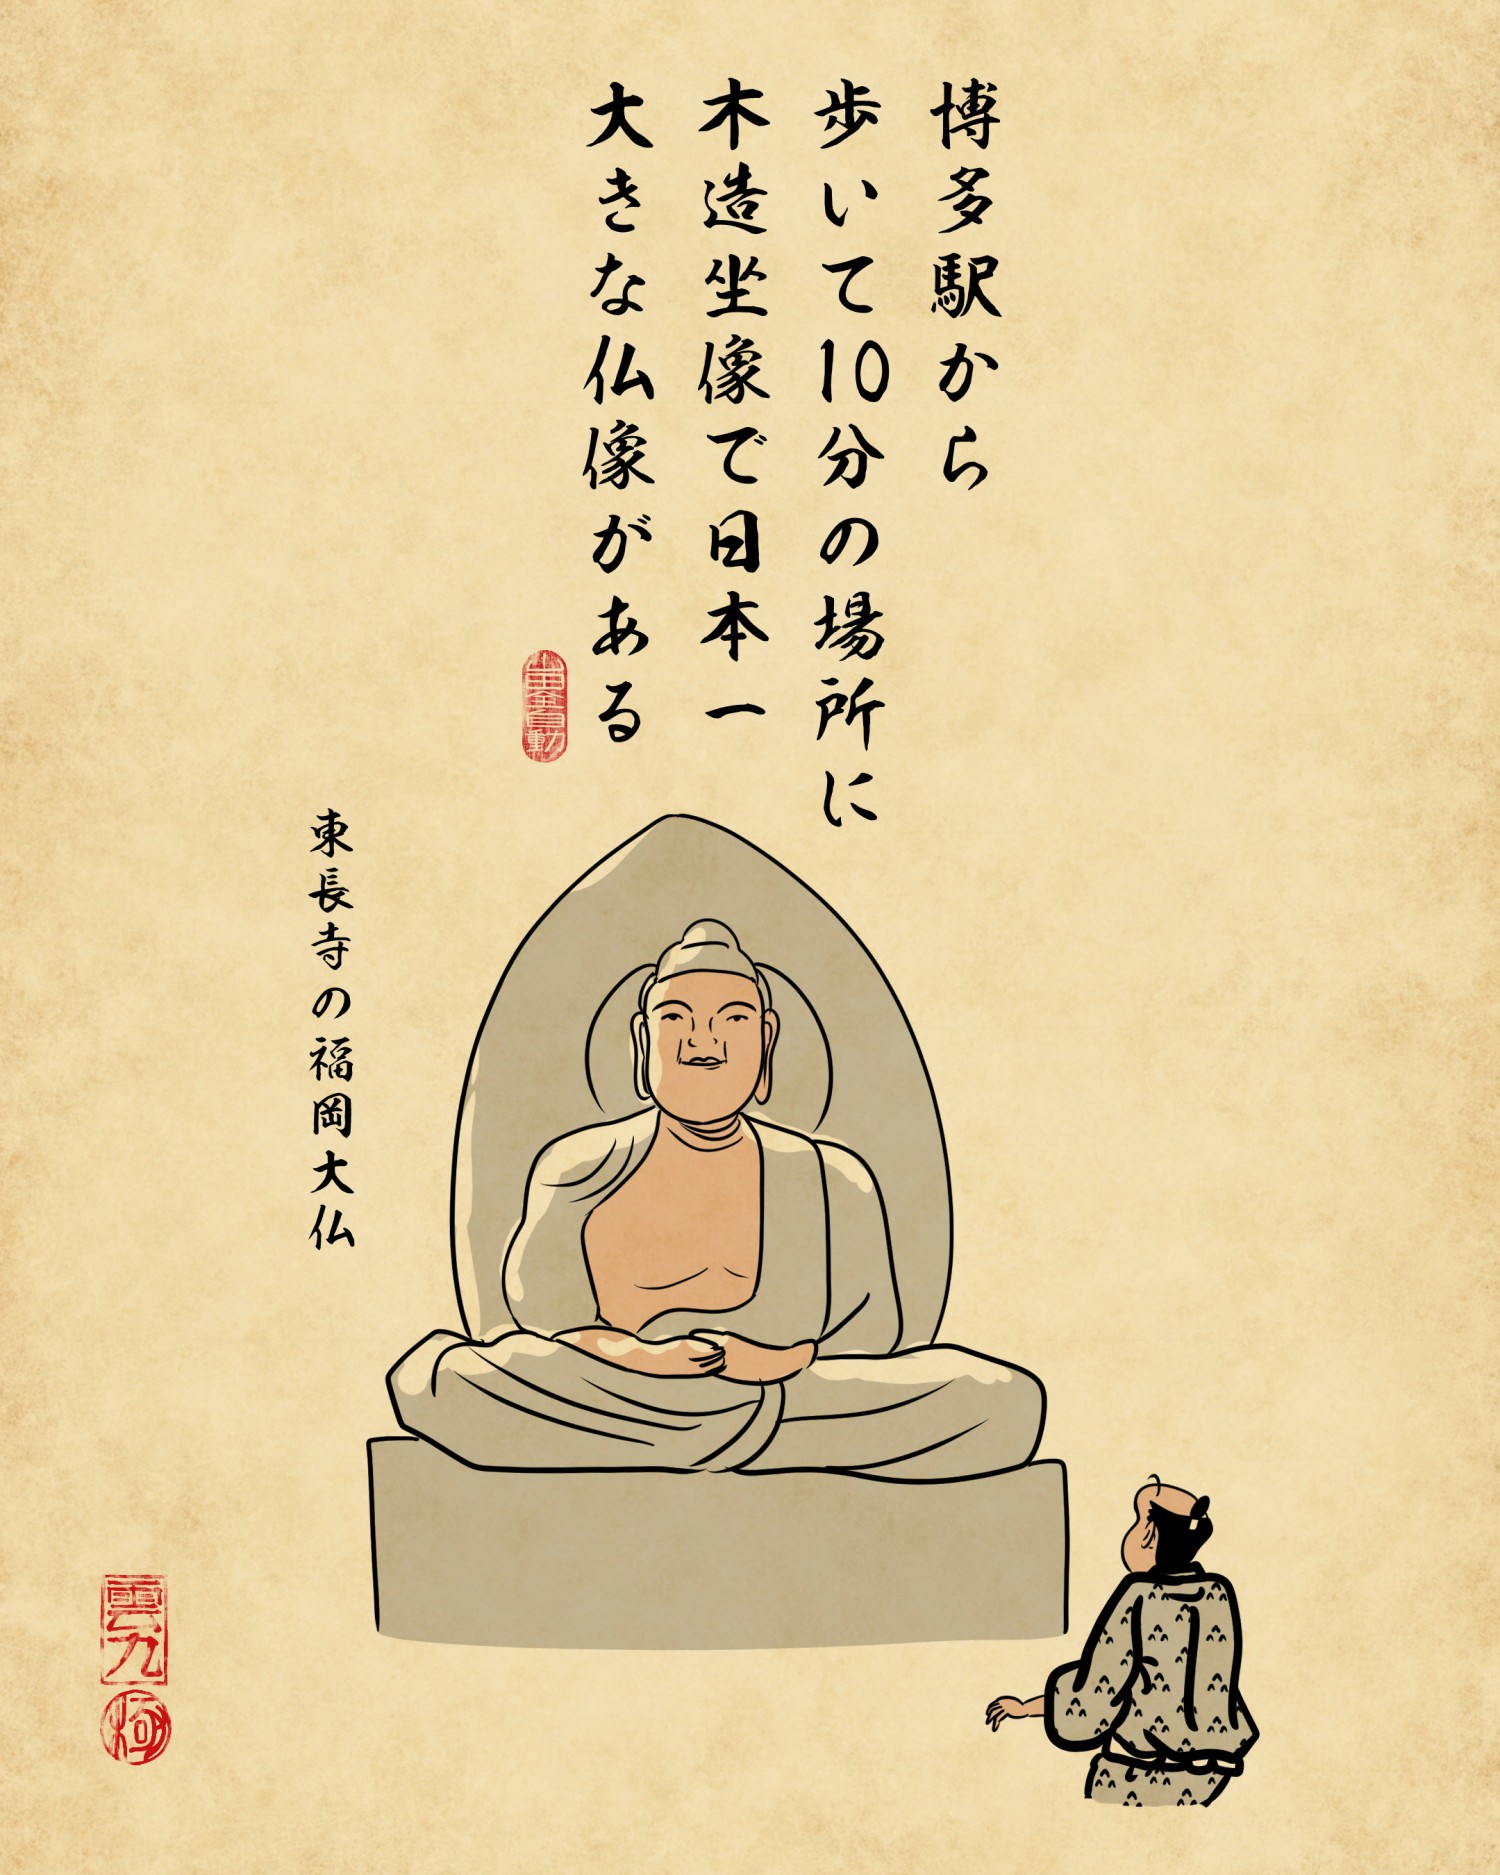 博多駅から
歩いて10分の場所に
木造坐像で日本一
大きな仏像がある
東長寺の福岡大仏
雲九
極